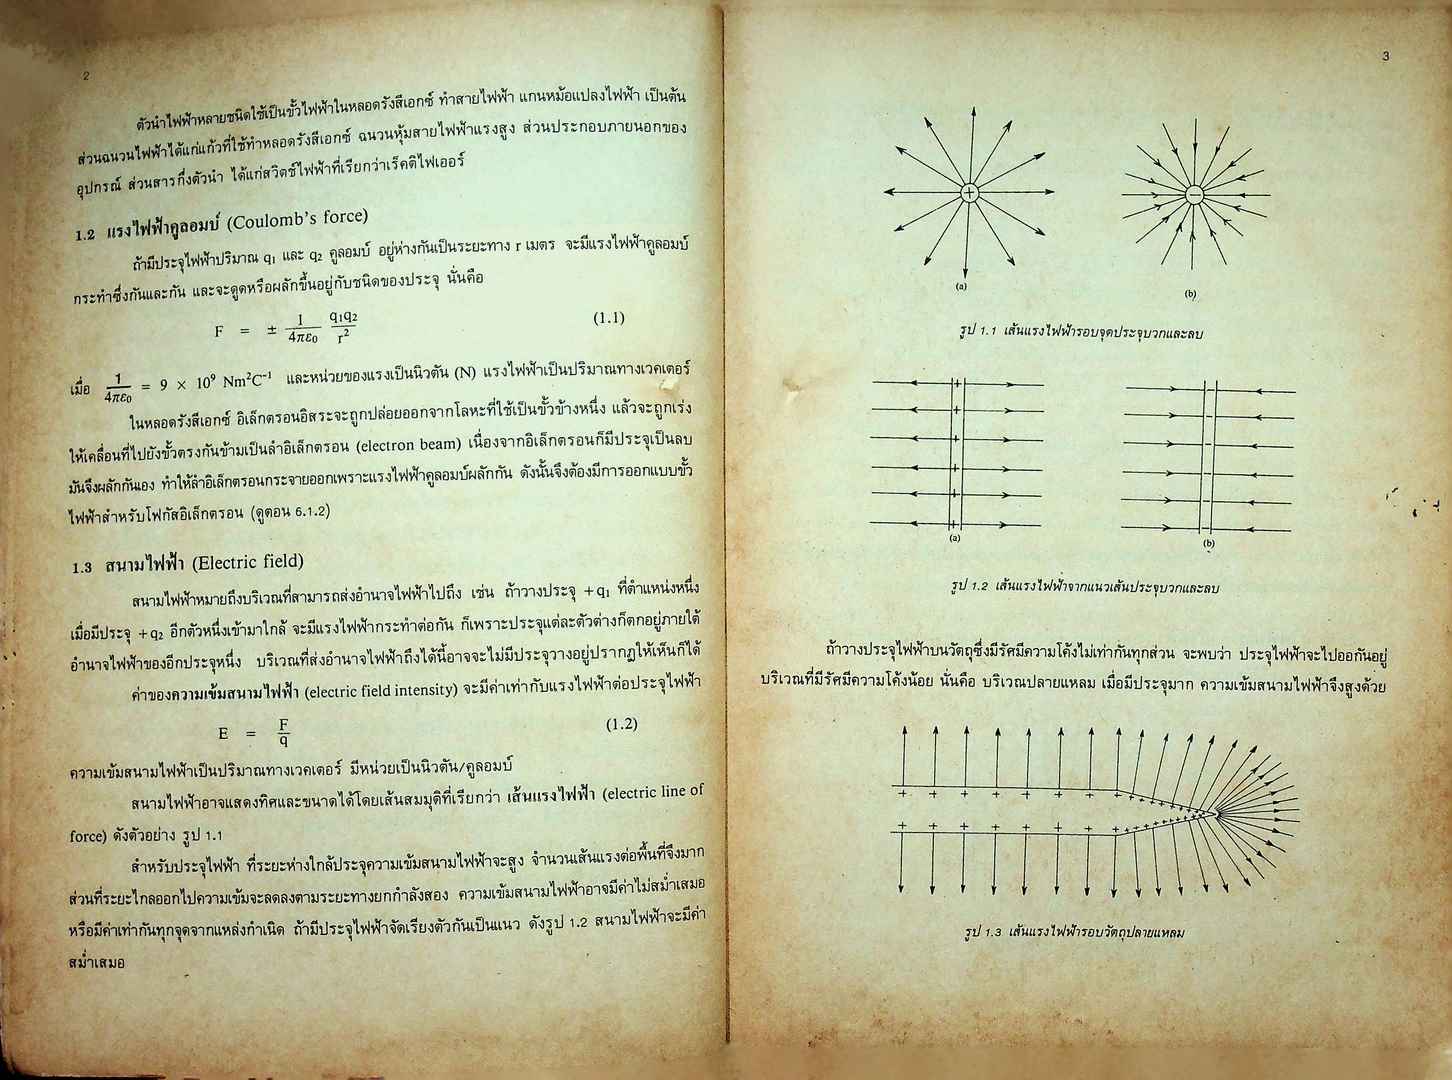 2
ตัวนำไฟฟ้าหลายชนิดใช้เป็นขั้วไฟฟ้าในหลอดรังสีเอกซ์ ทำสายไฟฟ้า แกนหม้อแปลงไฟฟ้า เป็นต้น
ส่วนฉนวนไฟฟ้าได้แก่แก้วที่ใช้ทำหลอดรังสีเอกซ์ ฉนวนหุ้มสายไฟฟ้าแรงสูง ส่วนประกอบภายนอกของ
อุปกรณ์ ส่วนสารกึ่งตัวนำ ได้แก่สวิตช์ไฟฟ้าที่เรียกว่าเร็คติไฟเออร์
1.2 แรงไฟฟ้าคูลอมบ์ (Coulomb's force)
ถ้ามีประจุไฟฟ้าปริมาณ q₁ และ q₂ คูลอมบ์ อยู่ห่างกันเป็นระยะทาง r เมตร จะมีแรงไฟฟ้าคูลอมบ์
กระทำซึ่งกันและกัน และจะดูดหรือผลักขึ้นอยู่กับชนิดของประจุ นั่นคือ
F = ± 1/4πε₀ q₁q₂/r² (1.1)
เมื่อ 1/4πε₀ = 9 × 10⁹ Nm²C⁻¹ และหน่วยของแรงเป็นนิวตัน (N) แรงไฟฟ้าเป็นปริมาณทางเวคเตอร์
ในหลอดรังสีเอกซ์ อิเล็กตรอนอิสระจะถูกปล่อยออกจากโลหะที่ใช้เป็นขั้วข้างหนึ่ง แล้วจะถูกเร่ง
ให้เคลื่อนที่ไปยังขั้วตรงกันข้ามเป็นลำอิเล็กตรอน (electron beam) เนื่องจากอิเล็กตรอนก็มีประจุเป็นลบ
มันจึงผลักกันเอง ทำให้ลำอิเล็กตรอนกระจายออกเพราะแรงไฟฟ้าคูลอมบ์ผลักกัน ดังนั้นจึงต้องมีการออกแบบขั้ว
ไฟฟ้าสำหรับโฟกัสอิเล็กตรอน (ดูตอน 6.1.2)
1.3 สนามไฟฟ้า (Electric field)
สนามไฟฟ้าหมายถึงบริเวณที่สามารถส่งอำนาจไฟฟ้าไปถึง เช่น ถ้าวางประจุ +q₁ ที่ตำแหน่งหนึ่ง
เมื่อมีประจุ +q₂ อีกตัวหนึ่งเข้ามาใกล้ จะมีแรงไฟฟ้ากระทำต่อกัน ก็เพราะประจุแต่ละตัวต่างก็ตกอยู่ภายใต้
อำนาจไฟฟ้าของอีกประจุหนึ่ง บริเวณที่ส่งอำนาจไฟฟ้าถึงได้นี้อาจจะไม่มีประจุวางอยู่ปรากฏให้เห็นก็ได้
ค่าของความเข้มสนามไฟฟ้า (electric field intensity) จะมีค่าเท่ากับแรงไฟฟ้าต่อประจุไฟฟ้า
E = F/q (1.2)
ความเข้มสนามไฟฟ้าเป็นปริมาณทางเวคเตอร์ มีหน่วยเป็นนิวตัน/คูลอมบ์
สนามไฟฟ้าอาจแสดงทิศและขนาดได้โดยเส้นสมมุติที่เรียกว่า เส้นแรงไฟฟ้า (electric line of
force) ดังตัวอย่าง รูป 1.1
สำหรับประจุไฟฟ้า ที่ระยะห่างใกล้ประจุความเข้มสนามไฟฟ้าจะสูง จำนวนเส้นแรงต่อพื้นที่จึงมาก
ส่วนที่ระยะไกลออกไปความเข้มจะลดลงตามระยะทางยกกำลังสอง ความเข้มสนามไฟฟ้าอาจมีค่าไม่สม่ำเสมอ
หรือมีค่าเท่ากันทุกจุดจากแหล่งกำเนิด ถ้ามีประจุไฟฟ้าจัดเรียงตัวกันเป็นแนว ดังรูป 1.2 สนามไฟฟ้าจะมีค่า
สม่ำเสมอ
3
(a) (b)
รูป 1.1 เส้นแรงไฟฟ้ารอบจุดประจุบวกและลบ
(a) (b)
รูป 1.2 เส้นแรงไฟฟ้าจากแนวเส้นประจุบวกและลบ
ถ้าวางประจุไฟฟ้าบนวัตถุซึ่งมีรัศมีความโค้งไม่เท่ากันทุกส่วน จะพบว่า ประจุไฟฟ้าจะไปออกันอยู่
บริเวณที่มีรัศมีความโค้งน้อย นั่นคือ บริเวณปลายแหลม เมื่อมีประจุมาก ความเข้มสนามไฟฟ้าจึงสูงด้วย
รูป 1.3 เส้นแรงไฟฟ้ารอบวัตถุปลายแหลม